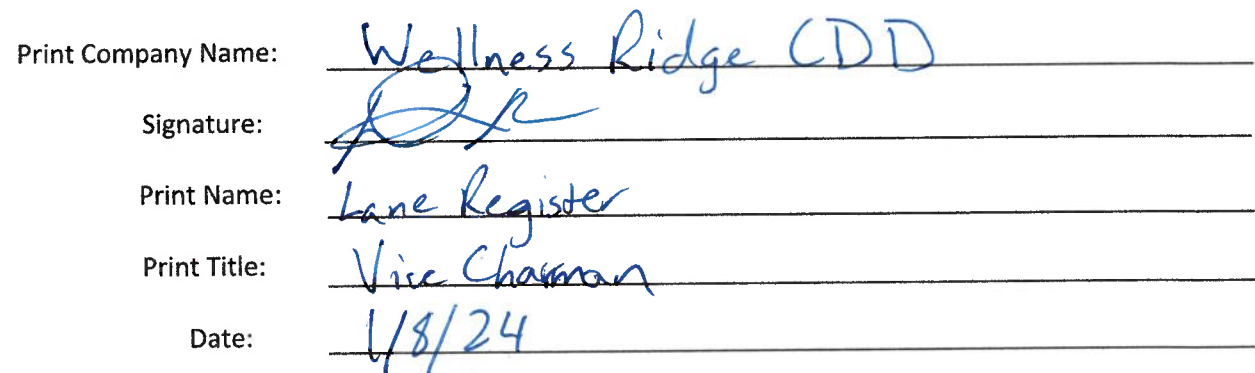 Print Company Name: Wellness Ridge CDD
Signature:
Print Name: Lane Register
Print Title: Vice Chairman
Date: 1/8/24